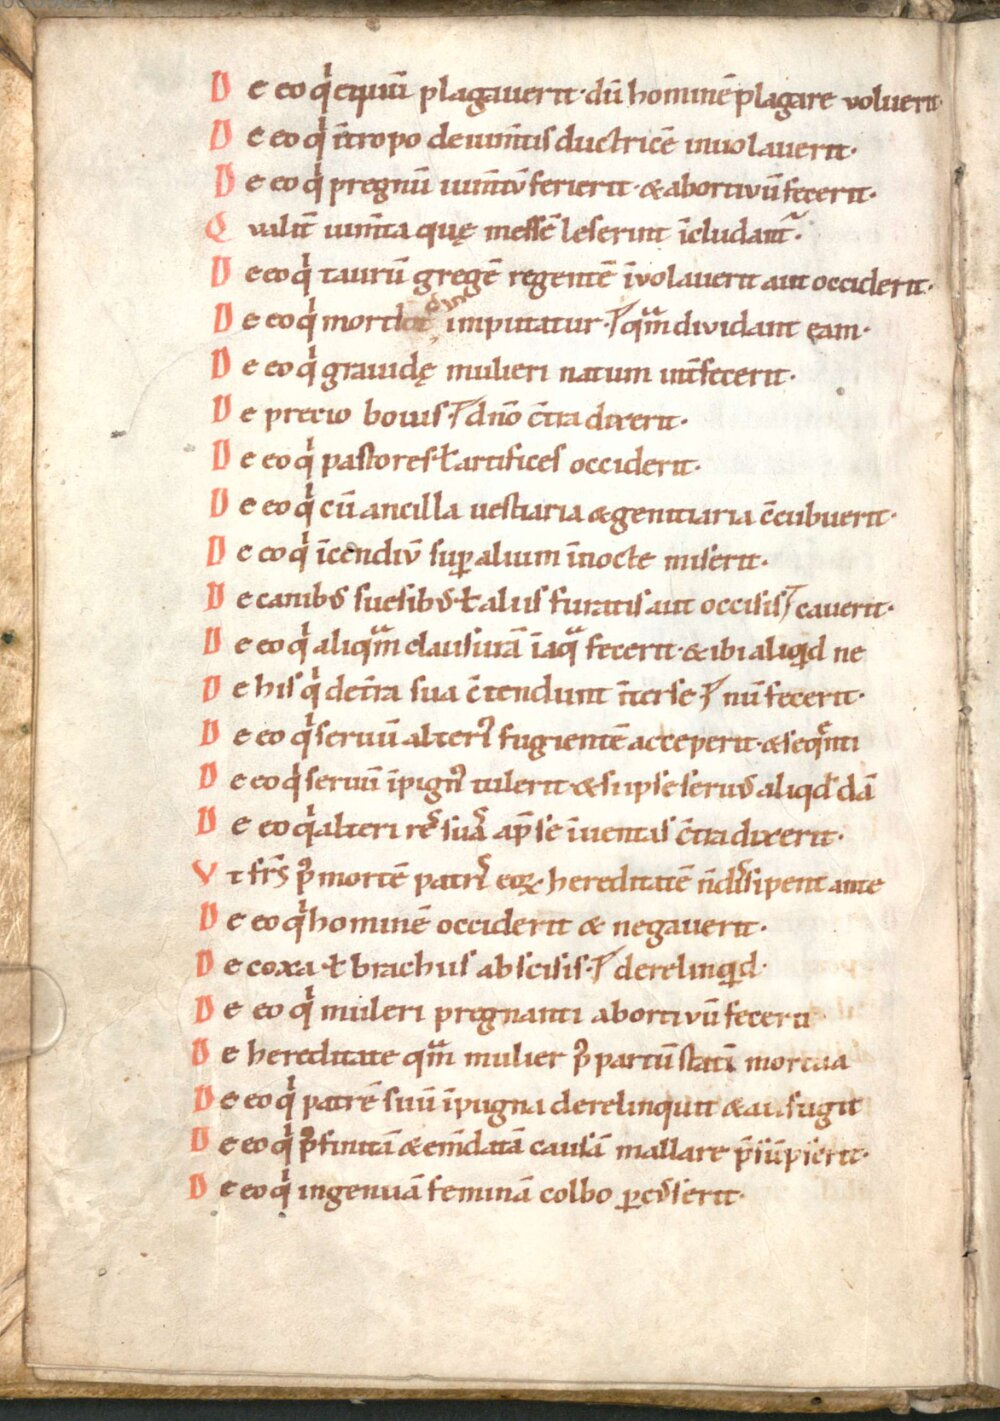 De eo q̇ equū plagauerit· dū hominē plagare voluerit·
De eo q̇ ītropo deiumtis ductricē inuolauerit·
De eo q̇ pregnū iumtū ferierit· & abortiuū fecerit·
Qualit̄ iumta quę messē leserint īcludant᷑·
De eo q̇ taurū gregē regentē īvolauerit aut occiderit·
De eo q̇ mortdot imputatur· qm̄ dividant eam·
De eo q̇ grauidę mulieri natum intfecerit·
De precio bouis· dño c̄tradixerit·
De eo q̇ pastores· ł artifices occiderit·
De eo q̇ cū ancilla uestiaria & genitiaria c̄cubuerit·
De eo q̇ īcendiū sup alium īnocte miserit·
De canibꝰ suesibꝰ· ł aliis furatis aut occisis cauerit·
De eo q̇ aliqm̄ clausurā īaq̄ fecerit· & ibi aliqd ne
De his q̇ det̄ra sua c̄tendunt n̄terse nū fecerit·
De eo q̇ seruū alterꝰ fugientē acceperit· & seqn̄ti
De eo q̇ seruū īpignꝰ tulerit· & sup se seruꝰ aliqd dā
De eo q̇ alteri rē suā ap̄ se īuentas c̄tradixerit·
Vt fr̄s pꝰ mortē patrꝭ eoꝝ· hereditatē n̄ dissipent ante
De eo q̇ hominē occiderit & negauerit·
De coxa· ł brachiis abscisis· derelinqd·
De eo q̇ muleri pregnanti abortivū fecerit
De hereditate qm̄ mulier pꝰ partū statī mortua
De eo q̇ patrē suū īpugna derelinquit & aufugit
De eo q̇ p̄finitā & em̄datā causā mallare
De eo q̇ ingenuā feminā colbo ꝑcuserit·